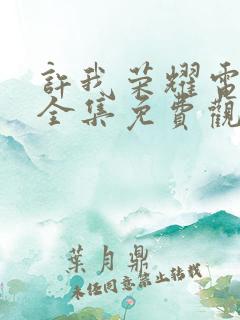 許我荣耀電
全集免費觀
葉月鼎
未经同意禁止转载